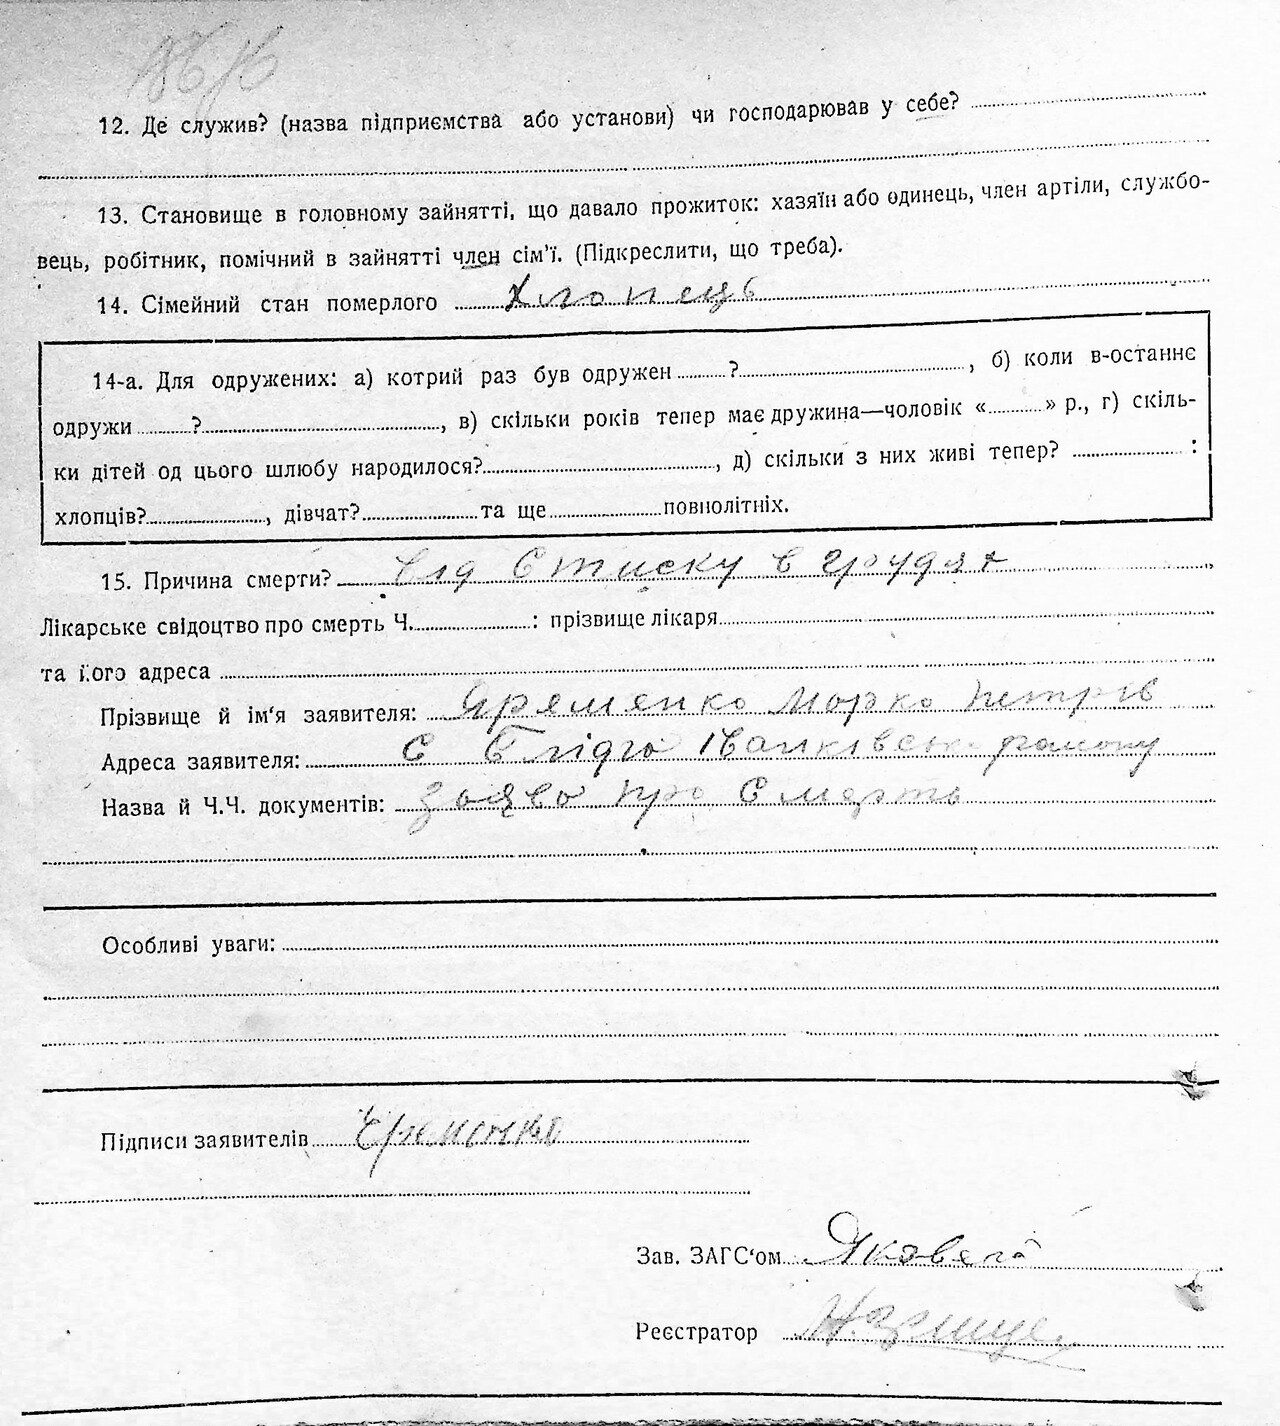 12. Де служив? (назва підприємства або установи) чи господарював у себе?
13. Становище в головному зайнятті, що давало прожиток: хазяїн або одинець, член артіли, службо-
вець, робітник, помічний в зайнятті член сім'ї. (Підкреслити, що треба).
14. Сімейний стан померлого Хлопець
14-а. Для одружених: а) котрий раз був одружен ? , б) коли в-останнє
одружи ? , в) скільки років тепер має дружина—чоловік « » р., г) скіль-
ки дітей од цього шлюбу народилося? , д) скільки з них живі тепер? :
хлопців? , дівчат? та ще повнолітніх.
15. Причина смерти? від Стиску в грудях
Лікарське свідоцтво про смерть Ч. : прізвище лікаря
та його адреса
Прізвище й ім'я заявителя: Яременко Марко Петрів
Адреса заявителя: С Іванківськ району
Назва й Ч.Ч. документів: Заява про Смерть
Особливі уваги:
Підписи заявителів
Зав. ЗАГС'ом
Реєстратор